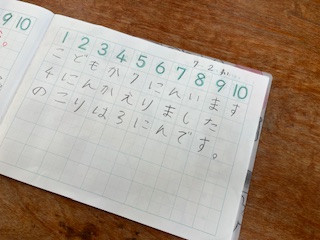 9 10
1 2 3 4 5 6 7 8 9 10
こどもが7にんいます
4にんかえりました
のこりは3にんです。